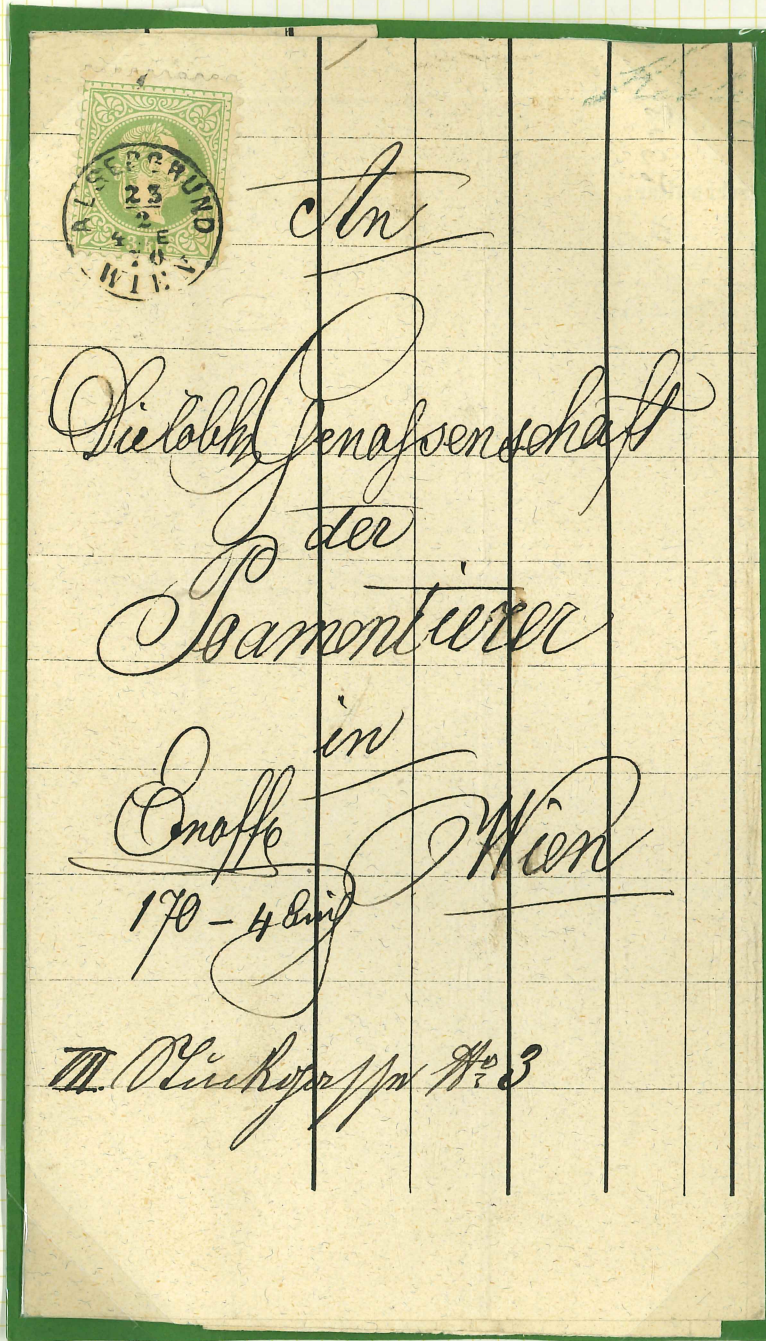 ALSERGRUND
23
2
4 E
70
WIEN
An
Die löbl. Genossenschaft
der
Posamentierer
in
Wien
170 – 4
III. Stuckgasse No 3